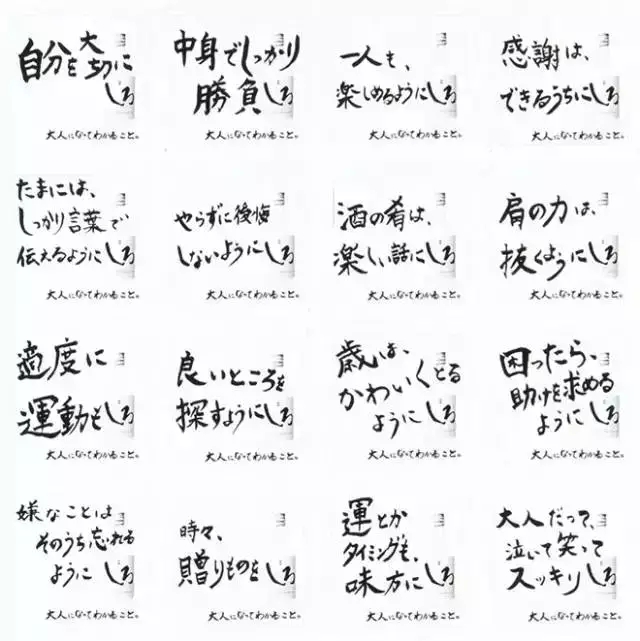 自分を大切に
しろ
大人になってわかること。
中身でしっかり
勝負しろ
大人になってわかること。
一人も、
楽しめるようにしろ
大人になってわかること。
感謝は、
できるうちにしろ
大人になってわかること。
たまには、
しっかり言葉で
伝えるようにしろ
大人になってわかること。
やらずに後悔
しないようにしろ
大人になってわかること。
酒の肴は、
楽しい話にしろ
大人になってわかること。
肩の力は、
抜くようにしろ
大人になってわかること。
適度に
運動もしろ
大人になってわかること。
良いところを
探すようにしろ
大人になってわかること。
歳は、
かわいくとる
ようにしろ
大人になってわかること。
困ったら、
助けを求める
ようにしろ
大人になってわかること。
嫌なことは
そのうち忘れる
ようにしろ
大人になってわかること。
時々、
贈りものをしろ
大人になってわかること。
運とか
タイミングも、
味方にしろ
大人になってわかること。
大人だって、
泣いて笑って
スッキリしろ
大人になってわかること。